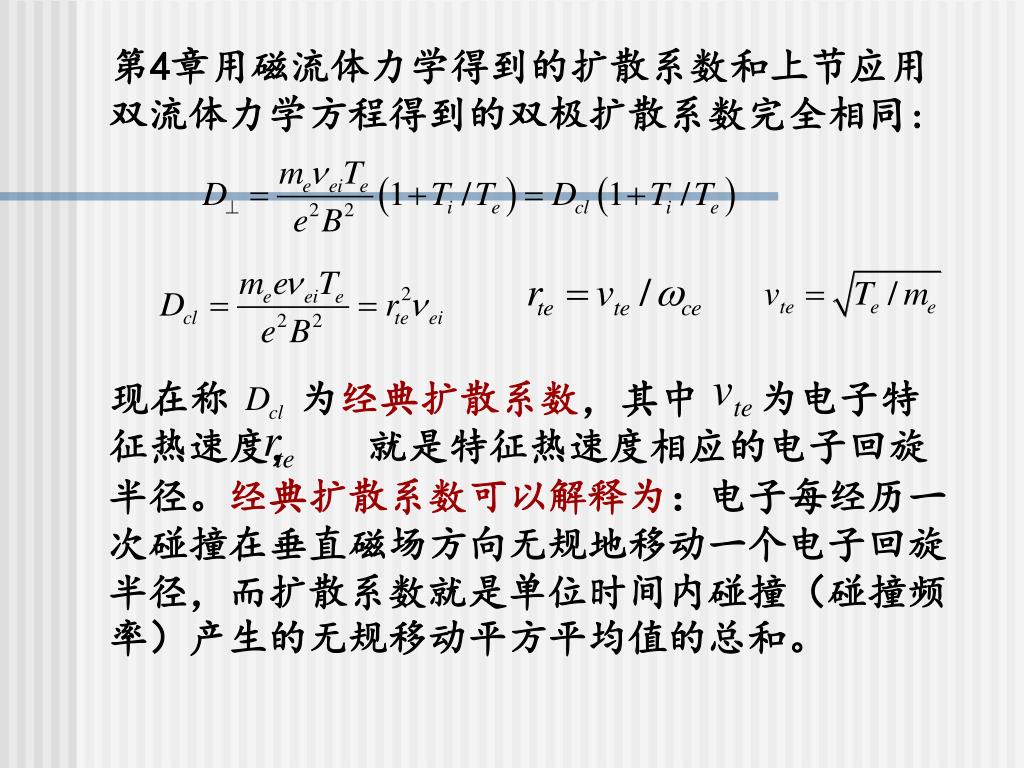 第4章用磁流体力学得到的扩散系数和上节应用
双流体力学方程得到的双极扩散系数完全相同：
D⊥ = (m_e ν_ei T_e)/(e²B²) (1+T_i/T_e) = D_cl (1+T_i/T_e)
D_cl = (m_e e ν_ei T_e)/(e²B²) = r_te² ν_ei    r_te = v_te/ω_ce    v_te = √(T_e/m_e)
现在称 D_cl 为经典扩散系数，其中 v_te 为电子特
征热速度，r_te 就是特征热速度相应的电子回旋
半径。经典扩散系数可以解释为：电子每经历一
次碰撞在垂直磁场方向无规地移动一个电子回旋
半径，而扩散系数就是单位时间内碰撞（碰撞频
率）产生的无规移动平方平均值的总和。